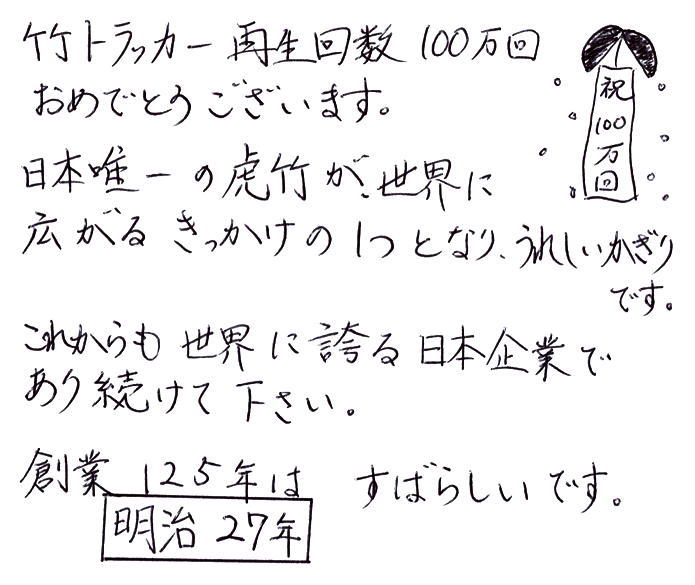 竹トラッカー再生回数100万回
おめでとうございます。
祝100万回
日本唯一の虎竹が、世界に
広がるきっかけの1つとなり、うれしいかぎり
です。
これからも世界に誇る日本企業で
あり続けて下さい。
創業125年は すばらしいです。
明治27年